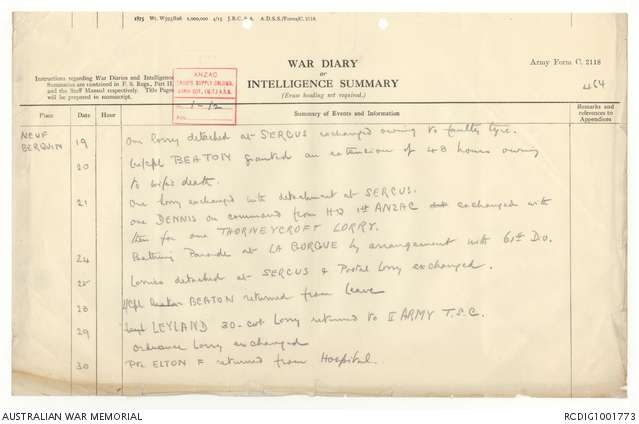 1875 Wt. W593/826 1,000,000 4/15 J.B.C. & A. A.D.S.S./Forms/C. 2118.
WAR DIARY
or
INTELLIGENCE SUMMARY
(Erase heading not required.)
Army Form C. 2118
464
Instructions regarding War Diaries and Intelligence
Summaries are contained in F. S. Regs., Part II.
and the Staff Manual respectively. Title Pages
will be prepared in manuscript.
ANZAC
1-12
Place Date Hour Summary of Events and Information Remarks and references to Appendices
NEUF BERQUIN 19 One lorry detached at SERCUS exchanged owing to faulty tyre.
20 L/Cpl BEATON granted an extension of 48 hours owing
to wife's death.
21 One lorry exchanged with detachment at SERCUS.
One DENNIS on command from HQ 1st ANZAC exchanged with
them for one THORNEYCROFT LORRY.
24 Bathing Parade at LA GORGUE by arrangement with 61st Div.
25 Lorries detached at SERCUS & Postal lorry exchanged.
28 L/Cpl BEATON returned from leave
29 LEYLAND 30-cwt lorry returned to II ARMY T.S.C.
Ordnance lorry exchanged
30 Pte ELTON F returned from Hospital.
AUSTRALIAN WAR MEMORIAL
RCDIG1001773